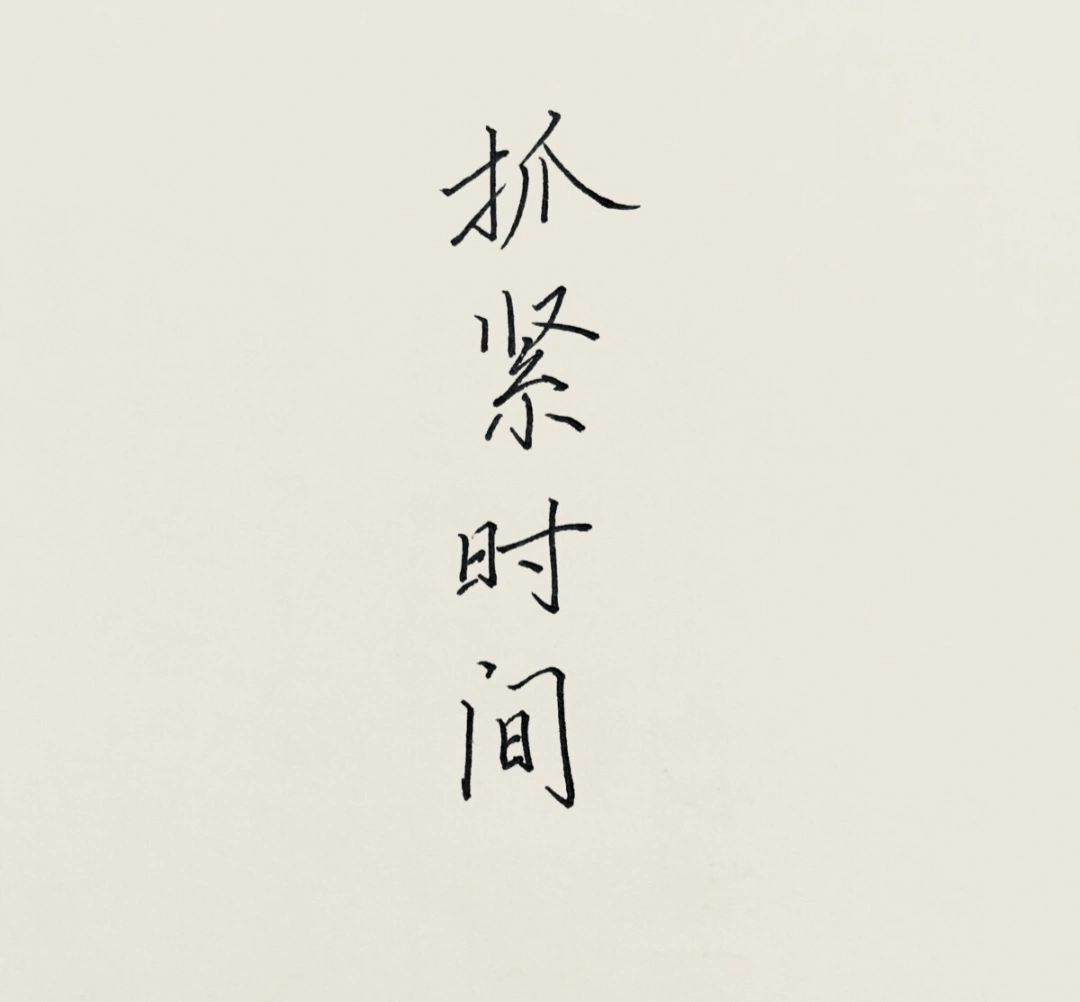 抓紧时间